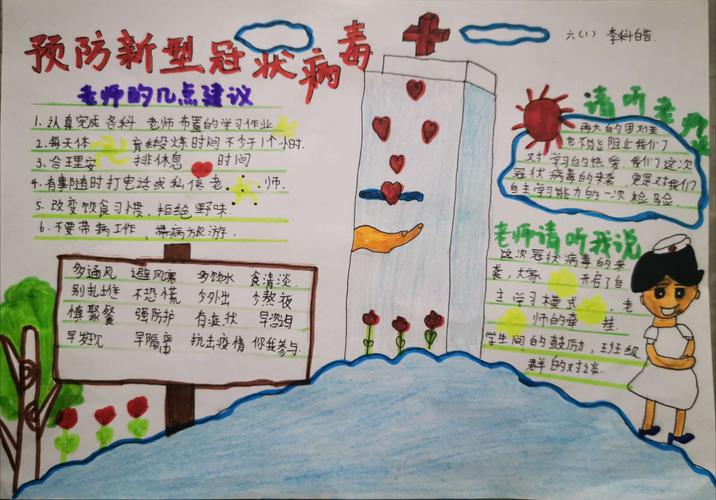 预防新型冠状病毒
六(1) 李科皓
老师的几点建议
1.认真完成各科 老师布置的学习作业
2.每天体 育锻炼时间不少于1个小时.
3.合理安 排休息 时间
4.有事随时打电话或私信老 师.
5.改变饮食习惯,拒绝野味.
6.不要带病工作、带病旅游.
多通风 避风寒 多饮水 食清淡.
别扎堆 不恐慌 少外出 少熬夜
慎聚餐 强防护 有症状 早咨询
早发现 早隔离 抗击疫情 你我参与.
请听老师
再大的困难
也不能阻止我们
对学习的热爱,我们这次
冠状病毒的来袭 更是对我们
自主学习能力的一次检验.
老师请听我说
这次冠状病毒的来
袭,大家 开启了自
主学习模式 老
师的牵 挂
学生间的鼓励,班级
群的对话.